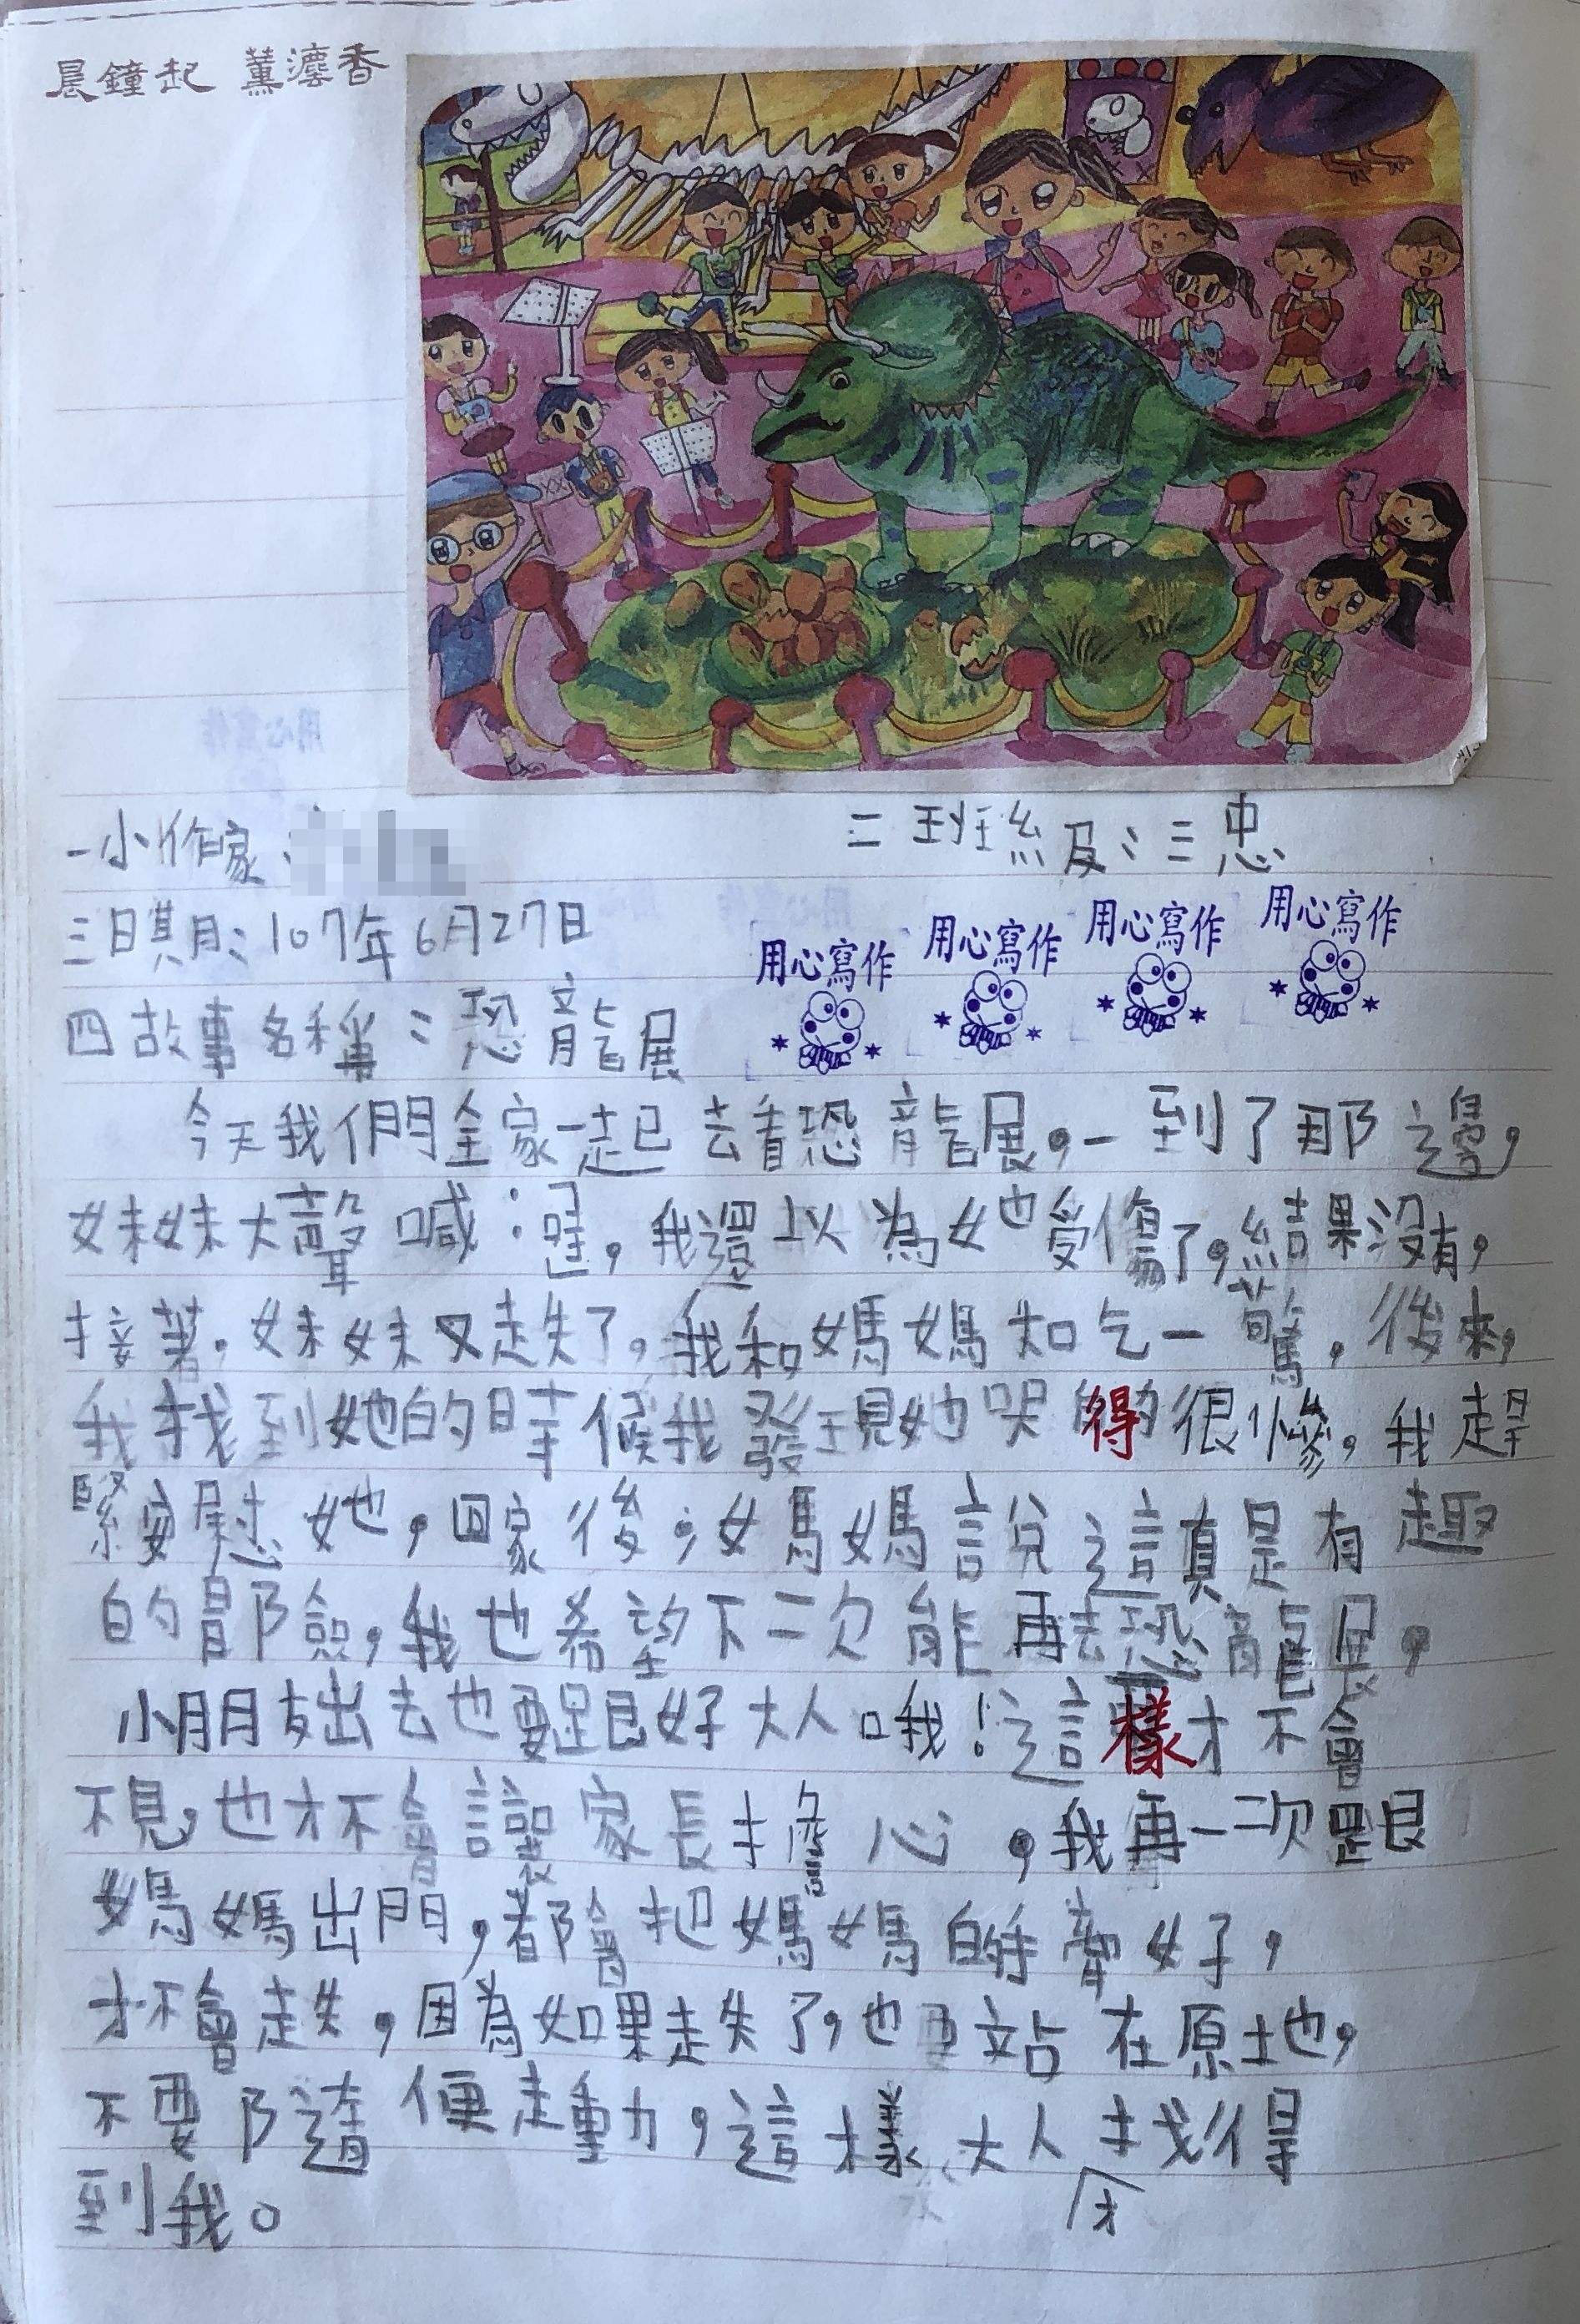 晨鐘起 薰塵香
一小作家：
二 班級：三忠
三日期：107年6月27日
用心寫作
用心寫作
用心寫作
用心寫作
四故事名稱：恐龍展
今天我們全家一起去看恐龍展，一到了那邊，
妹妹大聲喊：哇，我還以為她受傷了，結果沒有，
接著，妹妹又走失了，我和媽媽知吃一驚，後來，
我找到她的時候我發現她哭得很慘，我趕
緊安慰她，回家後，媽媽說這真是有趣
的冒險，我也希望下一次能再去恐龍展，
小朋友出去也要跟好大人哦！這樣才不會
不見，也才不會讓家長擔心，我再一次跟
媽媽出門，都會把媽媽的手牽好，
才不會走失，因為如果走失了，也要站在原地，
不要隨便走動，這樣大人才找得
到我。